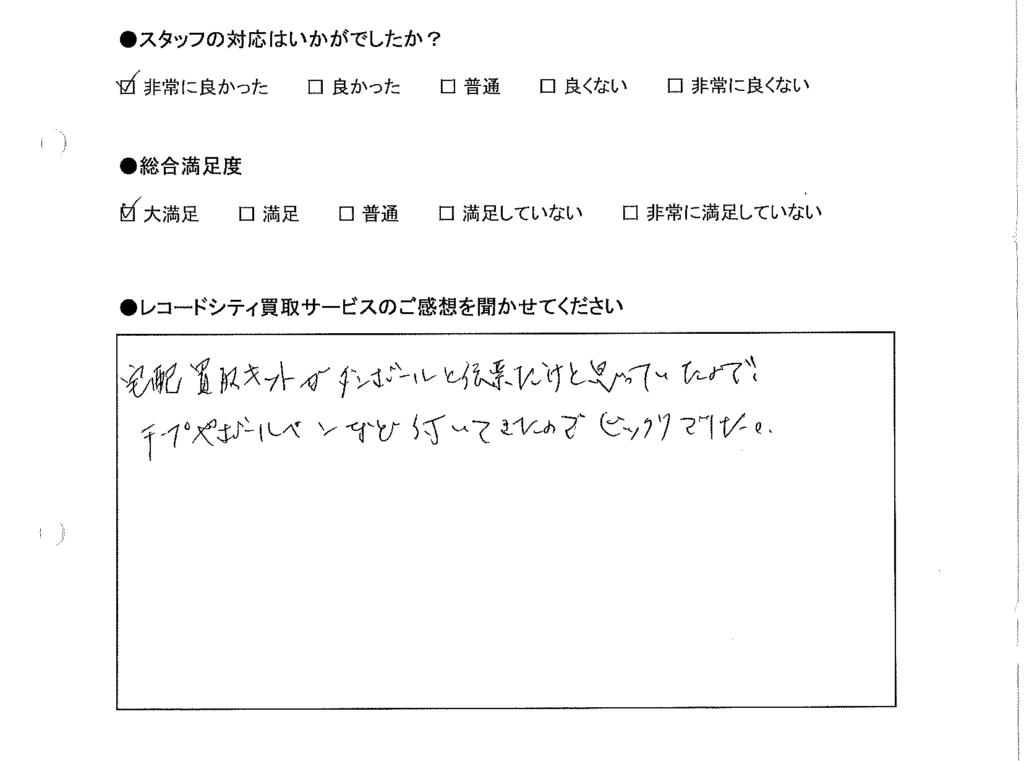 ●スタッフの対応はいかがでしたか？
☑ 非常に良かった □ 良かった □ 普通 □ 良くない □ 非常に良くない
●総合満足度
☑ 大満足 □ 満足 □ 普通 □ 満足していない □ 非常に満足していない
●レコードシティ買取サービスのご感想を聞かせてください
宅配買取キットがダンボールと伝票だけと思っていたので、
テープやボールペンなど付いてきたのでビックリでした。